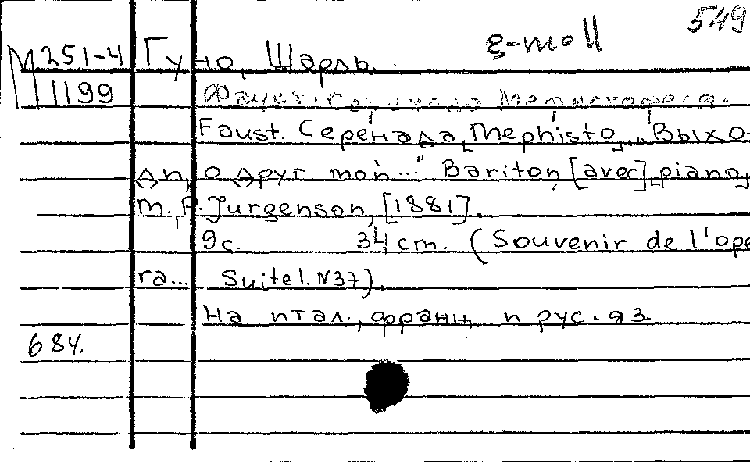 549
g-moll
М 251-4 Гуно, Шарль.
1199 Фауст. Серенада Мефистофеля.
Faust. Серенада Mephisto „Выхо-
ди, о друг мой..." Bariton [avec] piano,
М., P. Jurgenson, [1881].
9с. 34 cm. (Souvenir de l'opé
ra... Suite 1. N37).
На итал., франц. и рус. яз.
684.